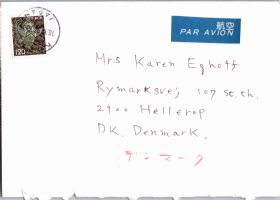 航空
PAR AVION
120
Mrs Karen Eghoff
Rymarksvej 107 st.th.
2900 Hellerop
DK. Denmark.
デンマーク